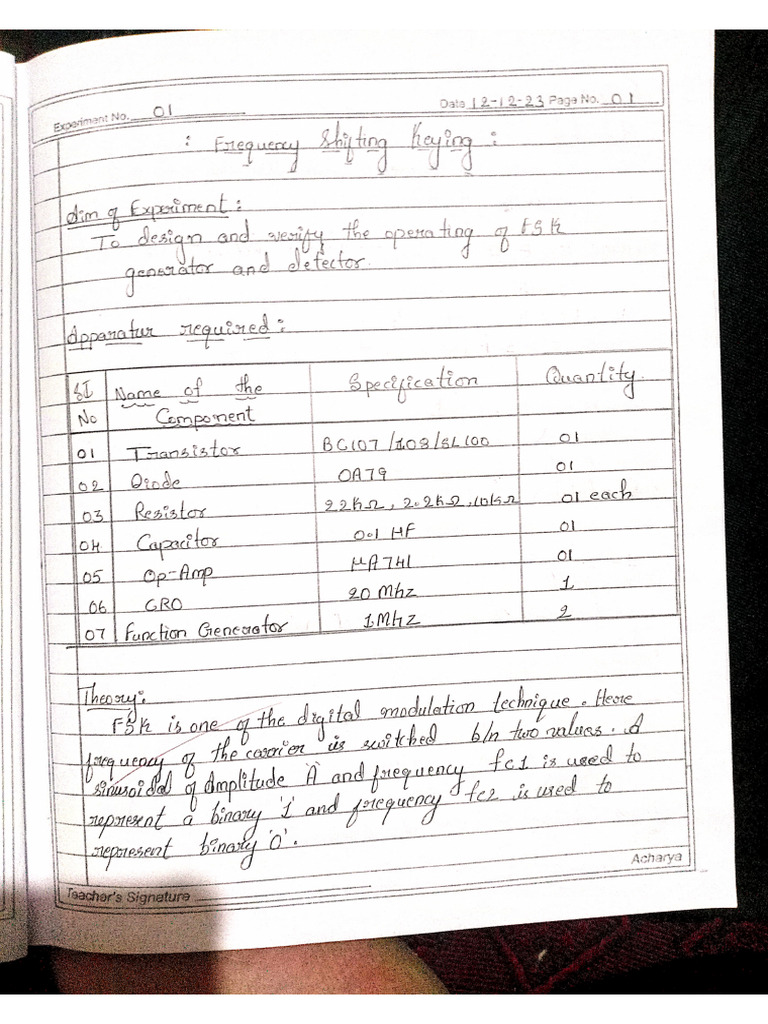 Experiment No. 01 Date 12-12-23 Page No. 01
: Frequency Shifting Keying :
Aim of Experiment :
To design and verify the operating of FSK
generator and detector.
Apparatur required :
SI Name of the Specification Quantity.
No Component
01 Transistor BC107/108/SL100 01
02 Diode OA79 01
03 Resistor 22kΩ, 2.2kΩ, 10kΩ 01 each
04 Capacitor 0.1 μF 01
05 Op-Amp μA741 01
06 CRO 20 Mhz 1
07 Function Generator 1Mhz 2
Theory:
FSK is one of the digital modulation technique. Here
frequency of the carrier is switched b/n two values. A
sinusoidal of Amplitude 'A' and frequency fc1 is used to
represent a binary '1' and frequency fc2 is used to
represent binary '0'.
Acharya
Teacher's Signature